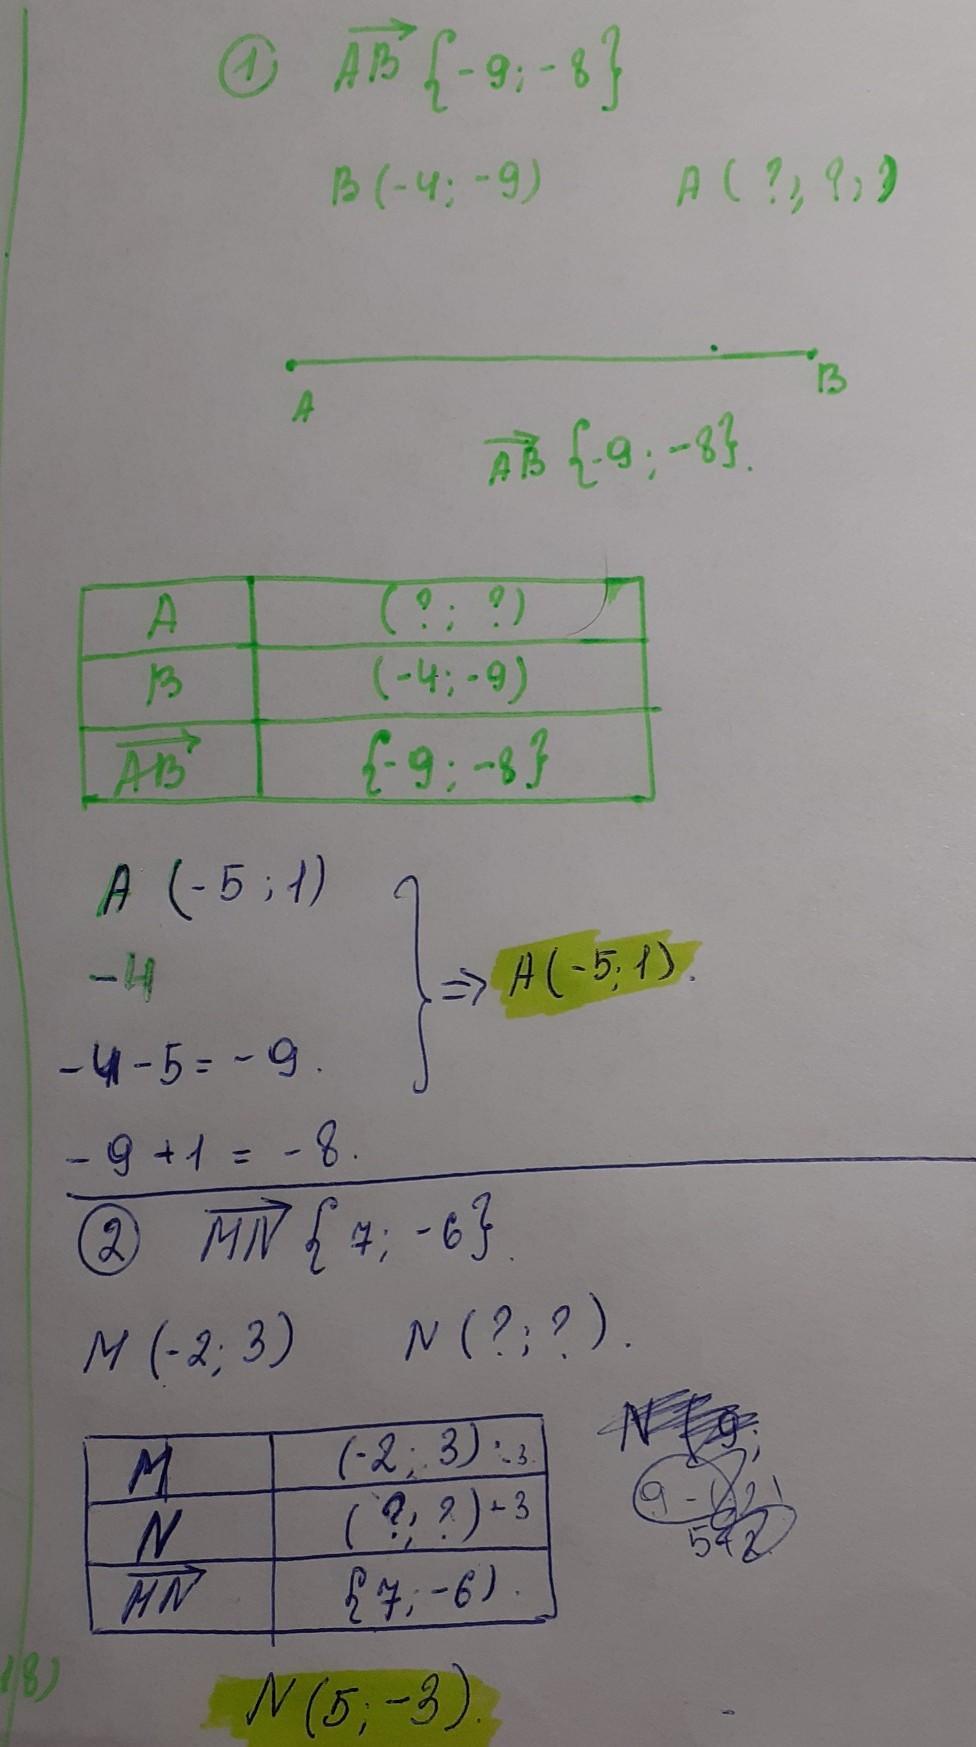 ① AB {-9; -8}
B (-4; -9) A (?; ?;)
A B
AB {-9; -8}.
A (?; ?)
B (-4; -9)
AB {-9; -8}
A (-5; 1)
-4
-4-5 = -9.
-9+1 = -8.
⇒ A(-5; 1).
② MN {7; -6}.
M (-2; 3) N (?; ?).
M (-2; 3)
N (?; ?)
MN {7; -6).
N (5; -3).